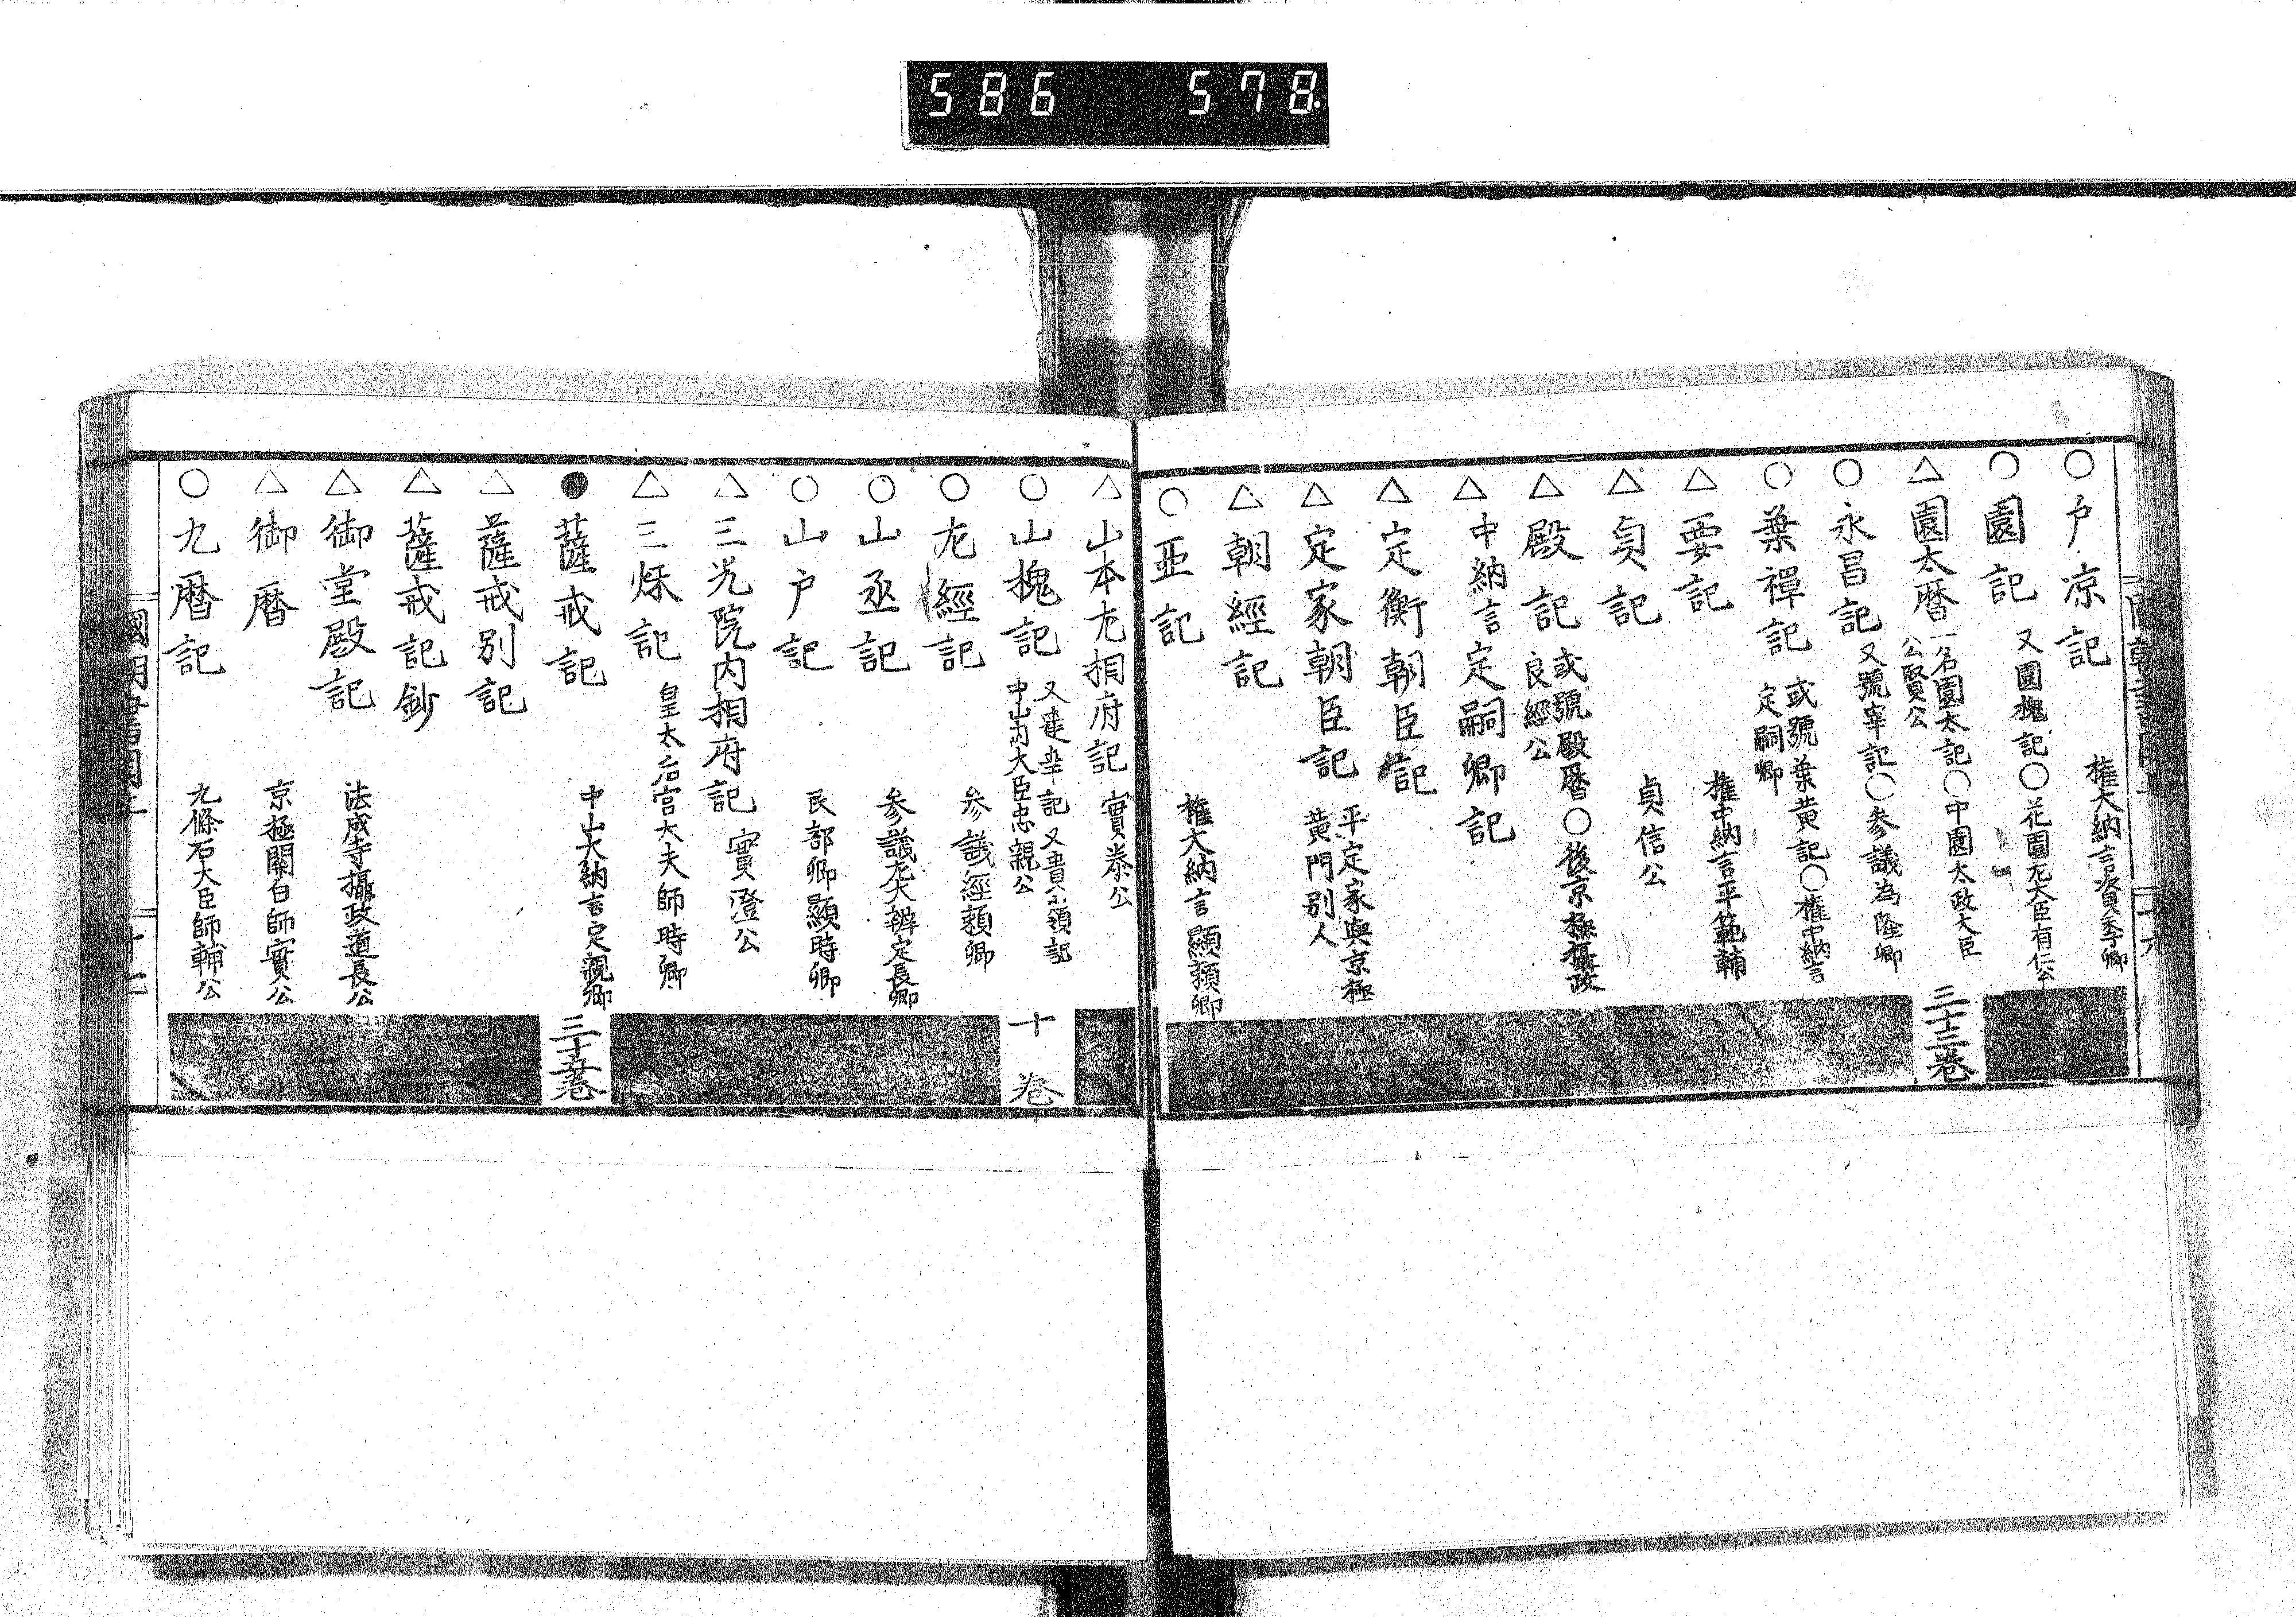 586 578.
○戸凉記 権大納言資季卿
○園記 又園槐記○花園左大臣有仁公
△園太暦 一名園太記○中園太政大臣公賢公 三十三巻
○永昌記 又號宰記○参議為隆卿
○葉禪記 或號葉黄記○権中納言定嗣卿
△要記 権中納言平範輔
△貞記 貞信公
△殿記 或號殿暦○後京極攝政良經公
△中納言定嗣卿記
△定衡朝臣記
△定家朝臣記 平定家與京極黄門別人
△朝經記
○亜記 権大納言顯頼卿
△山本左相府記 實泰公
○山槐記 中山内大臣忠親公 十巻
○左經記 参議經頼卿
○山丞記 参議左大辨定長卿
○山戸記 民部卿顯時卿
△三光院内相府記 實澄公
△三烁記 皇太后宮大夫師時卿
●薩戒記 中山大納言定親卿 三十五巻
△薩戒別記
△薩戒記鈔
△御堂殿記 法成寺攝政道長公
△御暦 京極關白師實公
○九暦記 九條右大臣師輔公